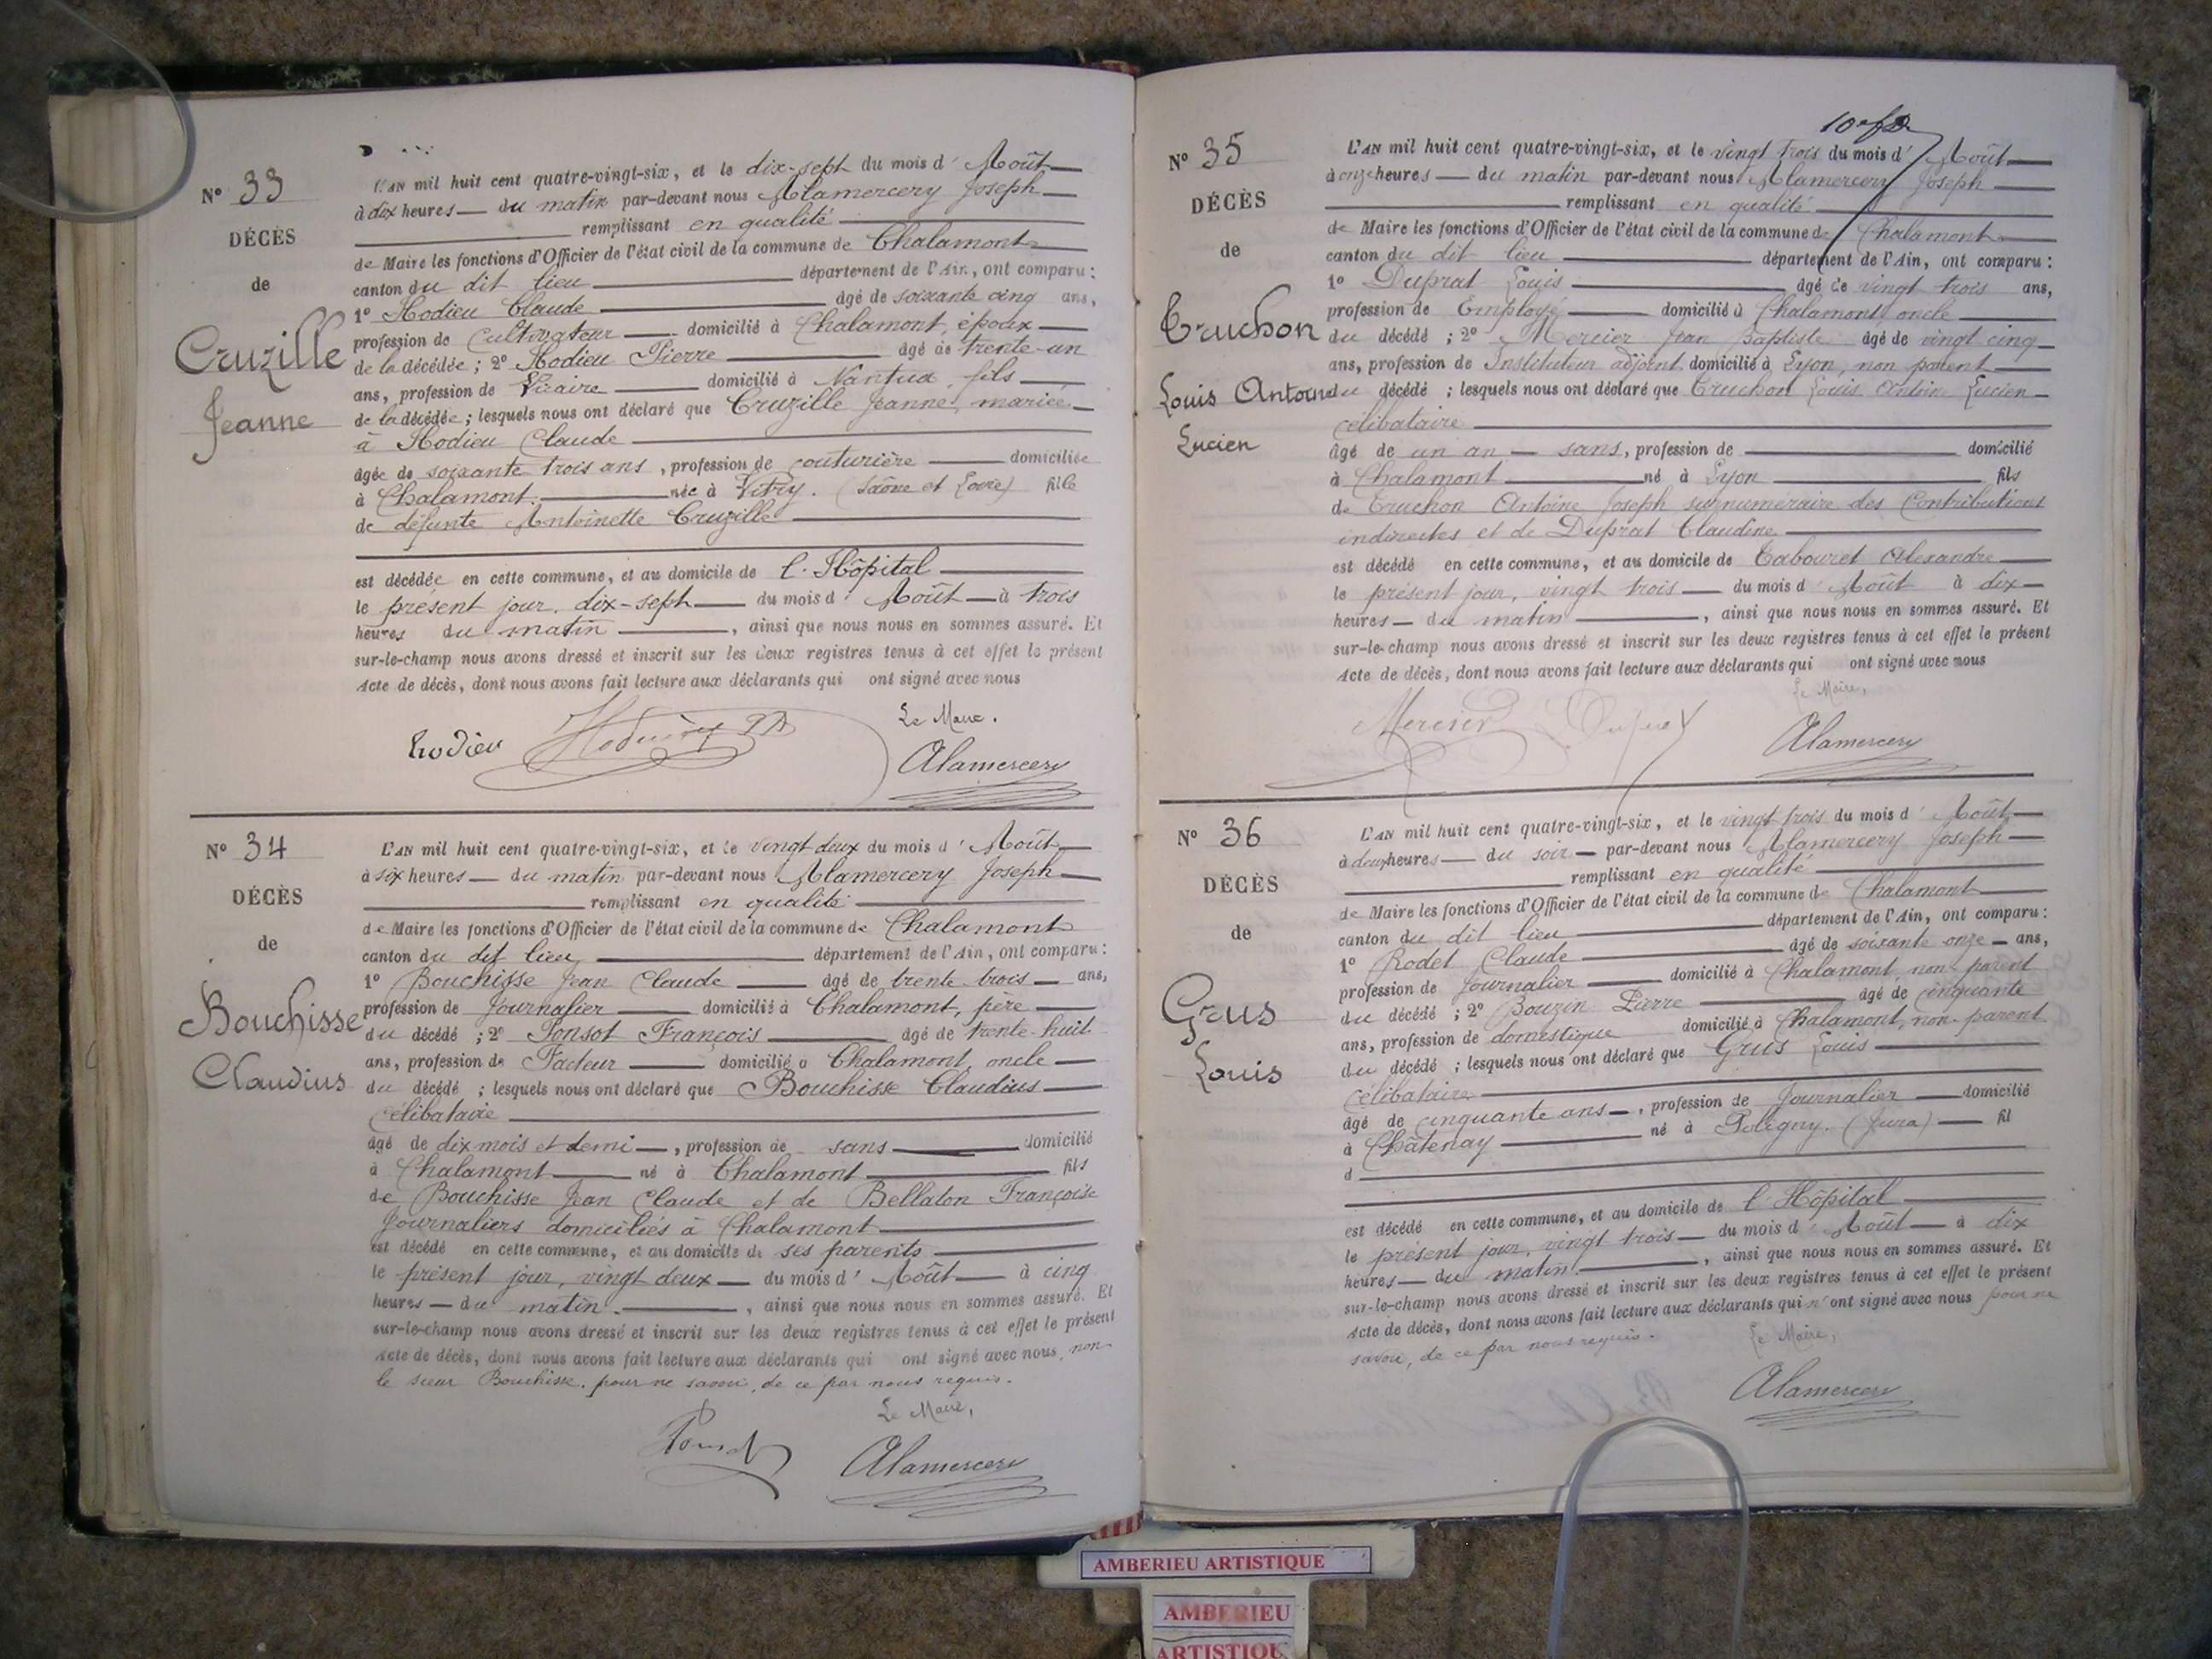 N° 33
DÉCÈS
de
Cruzille
Jeanne
L'AN mil huit cent quatre-vingt-six, et le dix-sept du mois d'Août
à dix heures du matin par-devant nous Alamercery Joseph
remplissant en qualité
de Maire les fonctions d'Officier de l'état civil de la commune de Chalamont
canton du dit lieu département de l'Ain, ont comparu :
1° Hodieu Claude âgé de soixante cinq ans,
profession de Cultivateur domicilié à Chalamont, époux
de la décédée ; 2° Hodieu Pierre âgé de trente-un
ans, profession de Vicaire domicilié à Nantua, fils
de la décédée ; lesquels nous ont déclaré que Cruzille Jeanne, mariée
à Hodieu Claude
âgée de soixante trois ans, profession de couturière domiciliée
à Chalamont. née à Vitry. (Saône et Loire) fille
de défunte Antoinette Cruzille
est décédée en cette commune, et au domicile de l'Hôpital
le présent jour, dix-sept du mois d'Août à trois
heures du matin, ainsi que nous nous en sommes assuré. Et
sur-le-champ nous avons dressé et inscrit sur les deux registres tenus à cet effet le présent
Acte de décès, dont nous avons fait lecture aux déclarants qui ont signé avec nous
Le Maire.
hodieu
Alamercery
N° 34
DÉCÈS
de
Bouchisse
Claudius
L'AN mil huit cent quatre-vingt-six, et le vingt deux du mois d'Août
à six heures du matin par-devant nous Alamercery Joseph
remplissant en qualité
de Maire les fonctions d'Officier de l'état civil de la commune de Chalamont
canton du dit lieu département de l'Ain, ont comparu :
1° Bouchisse Jean Claude âgé de trente trois ans,
profession de Journalier domicilié à Chalamont, père
du décédé ; 2° Ponsot François âgé de trente-huit
ans, profession de Facteur domicilié à Chalamont, oncle
du décédé ; lesquels nous ont déclaré que Bouchisse Claudius
célibataire
âgé de dix mois et demi, profession de sans domicilié
à Chalamont né à Chalamont fils
de Bouchisse Jean Claude et de Bellaton Françoise
Journaliers domiciliés à Chalamont
est décédé en cette commune, et au domicile de ses parents
le présent jour, vingt deux du mois d'Août à cinq
heures du matin., ainsi que nous nous en sommes assuré. Et
sur-le-champ nous avons dressé et inscrit sur les deux registres tenus à cet effet le présent
Acte de décès, dont nous avons fait lecture aux déclarants qui ont signé avec nous, non
le sieur Bouchisse. pour ne savoir, de ce par nous requis.
Le Maire,
Alamercery
N° 35
DÉCÈS
de
Truchon
Louis Antoine
Lucien
L'AN mil huit cent quatre-vingt-six, et le vingt trois du mois d'Août
à onze heures du matin par-devant nous Alamercery Joseph
remplissant en qualité
de Maire les fonctions d'Officier de l'état civil de la commune de Chalamont
canton du dit lieu département de l'Ain, ont comparu :
1° Duprat Louis âgé de vingt trois ans,
profession de Employé domicilié à Chalamont oncle
du décédé ; 2° Mercier Jean Baptiste âgé de vingt cinq
ans, profession de Instituteur adjoint domicilié à Lyon, non parent
du décédé ; lesquels nous ont déclaré que Truchon Louis Antoine Lucien
célibataire
âgé de un an sans, profession de domicilié
à Chalamont né à Lyon fils
de Truchon Antoine Joseph surnuméraire des Contributions
indirectes et de Duprat Claudine
est décédé en cette commune, et au domicile de Tabouret Alexandre
le présent jour, vingt trois du mois d'Août à dix
heures du matin, ainsi que nous nous en sommes assuré. Et
sur-le-champ nous avons dressé et inscrit sur les deux registres tenus à cet effet le présent
Acte de décès, dont nous avons fait lecture aux déclarants qui ont signé avec nous
Le Maire,
Mercier
Alamercery
N° 36
DÉCÈS
de
Grus
Louis
L'AN mil huit cent quatre-vingt-six, et le vingt trois du mois d'Août
à deux heures du soir par-devant nous Alamercery Joseph
remplissant en qualité
de Maire les fonctions d'Officier de l'état civil de la commune de Chalamont
canton du dit lieu département de l'Ain, ont comparu :
1° Rodet Claude âgé de soixante onze ans,
profession de Journalier domicilié à Chalamont, non parent
du décédé ; 2° Bouzin Pierre âgé de cinquante
ans, profession de domestique domicilié à Chalamont, non-parent
du décédé ; lesquels nous ont déclaré que Grus Louis
célibataire
âgé de cinquante ans, profession de Journalier domicilié
à Châtenay né à Poligny. (Jura) fil
d
est décédé en cette commune, et au domicile de l'Hôpital
le présent jour, vingt trois du mois d'Août à dix
heures du matin., ainsi que nous nous en sommes assuré. Et
sur-le-champ nous avons dressé et inscrit sur les deux registres tenus à cet effet le présent
Acte de décès, dont nous avons fait lecture aux déclarants qui n'ont signé avec nous pour ne
savoir, de ce par nous requis.
Le Maire,
Alamercery
AMBERIEU ARTISTIQUE
AMBERIEU
ARTISTIQU